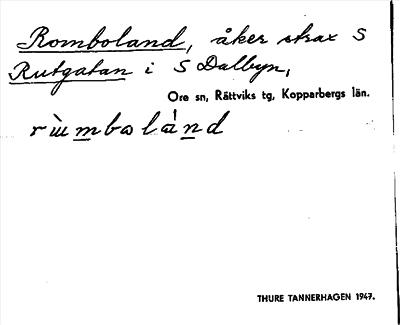 Romboland, åker strax S
Rutgatan i S Dalbyn,
Ore sn, Rättviks tg, Kopparbergs län.
rùmbolánd
THURE TANNERHAGEN 1947.